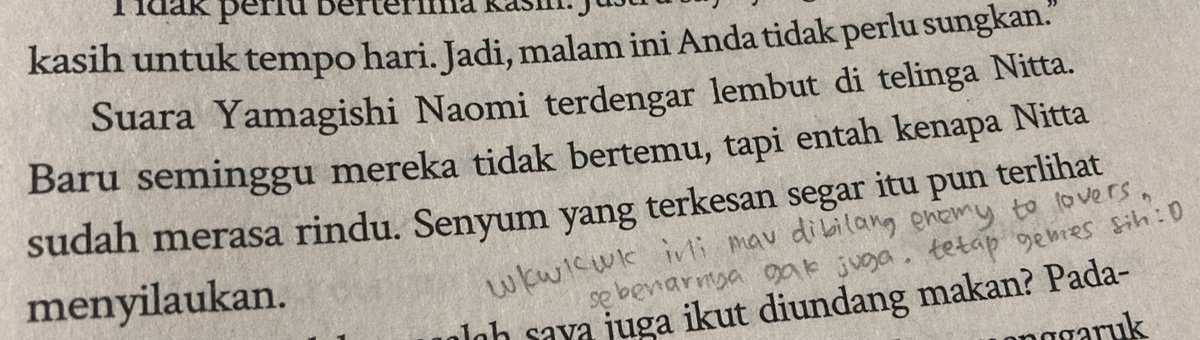 Tidak perlu berterima kasih.
kasih untuk tempo hari. Jadi, malam ini Anda tidak perlu sungkan.”
Suara Yamagishi Naomi terdengar lembut di telinga Nitta.
Baru seminggu mereka tidak bertemu, tapi entah kenapa Nitta
sudah merasa rindu. Senyum yang terkesan segar itu pun terlihat
menyilaukan.
wkwkwk ini mau dibilang enemy to lovers,
sebenarnya gak juga. tetap gemes sih :D
saya juga ikut diundang makan? Pada-